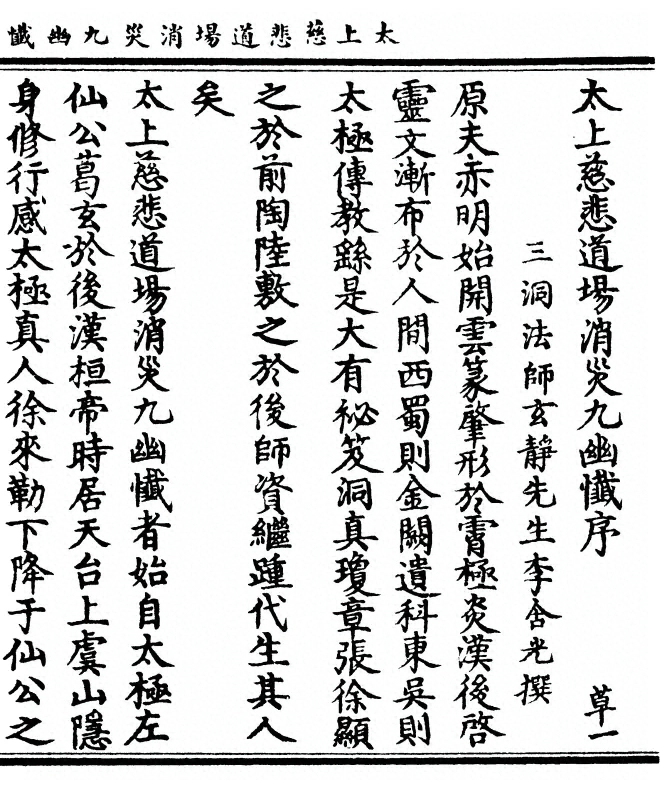 太上慈悲道場消災九幽懺
太上慈悲道場消災九幽懺序 草一
三洞法師玄靜先生李含光撰
原夫赤明始開雲篆肇形於霄極炎漢後啓
靈文漸布於人間西蜀則金闕遺科東吳則
太極傳教繇是大有祕笈洞真瓊章張徐顯
之於前陶陸敷之於後師資繼踵代生其人
矣
太上慈悲道場消災九幽懺者始自太極左
仙公葛玄於後漢桓帝時居天台上虞山隱
身修行感太極真人徐來勒下降于仙公之